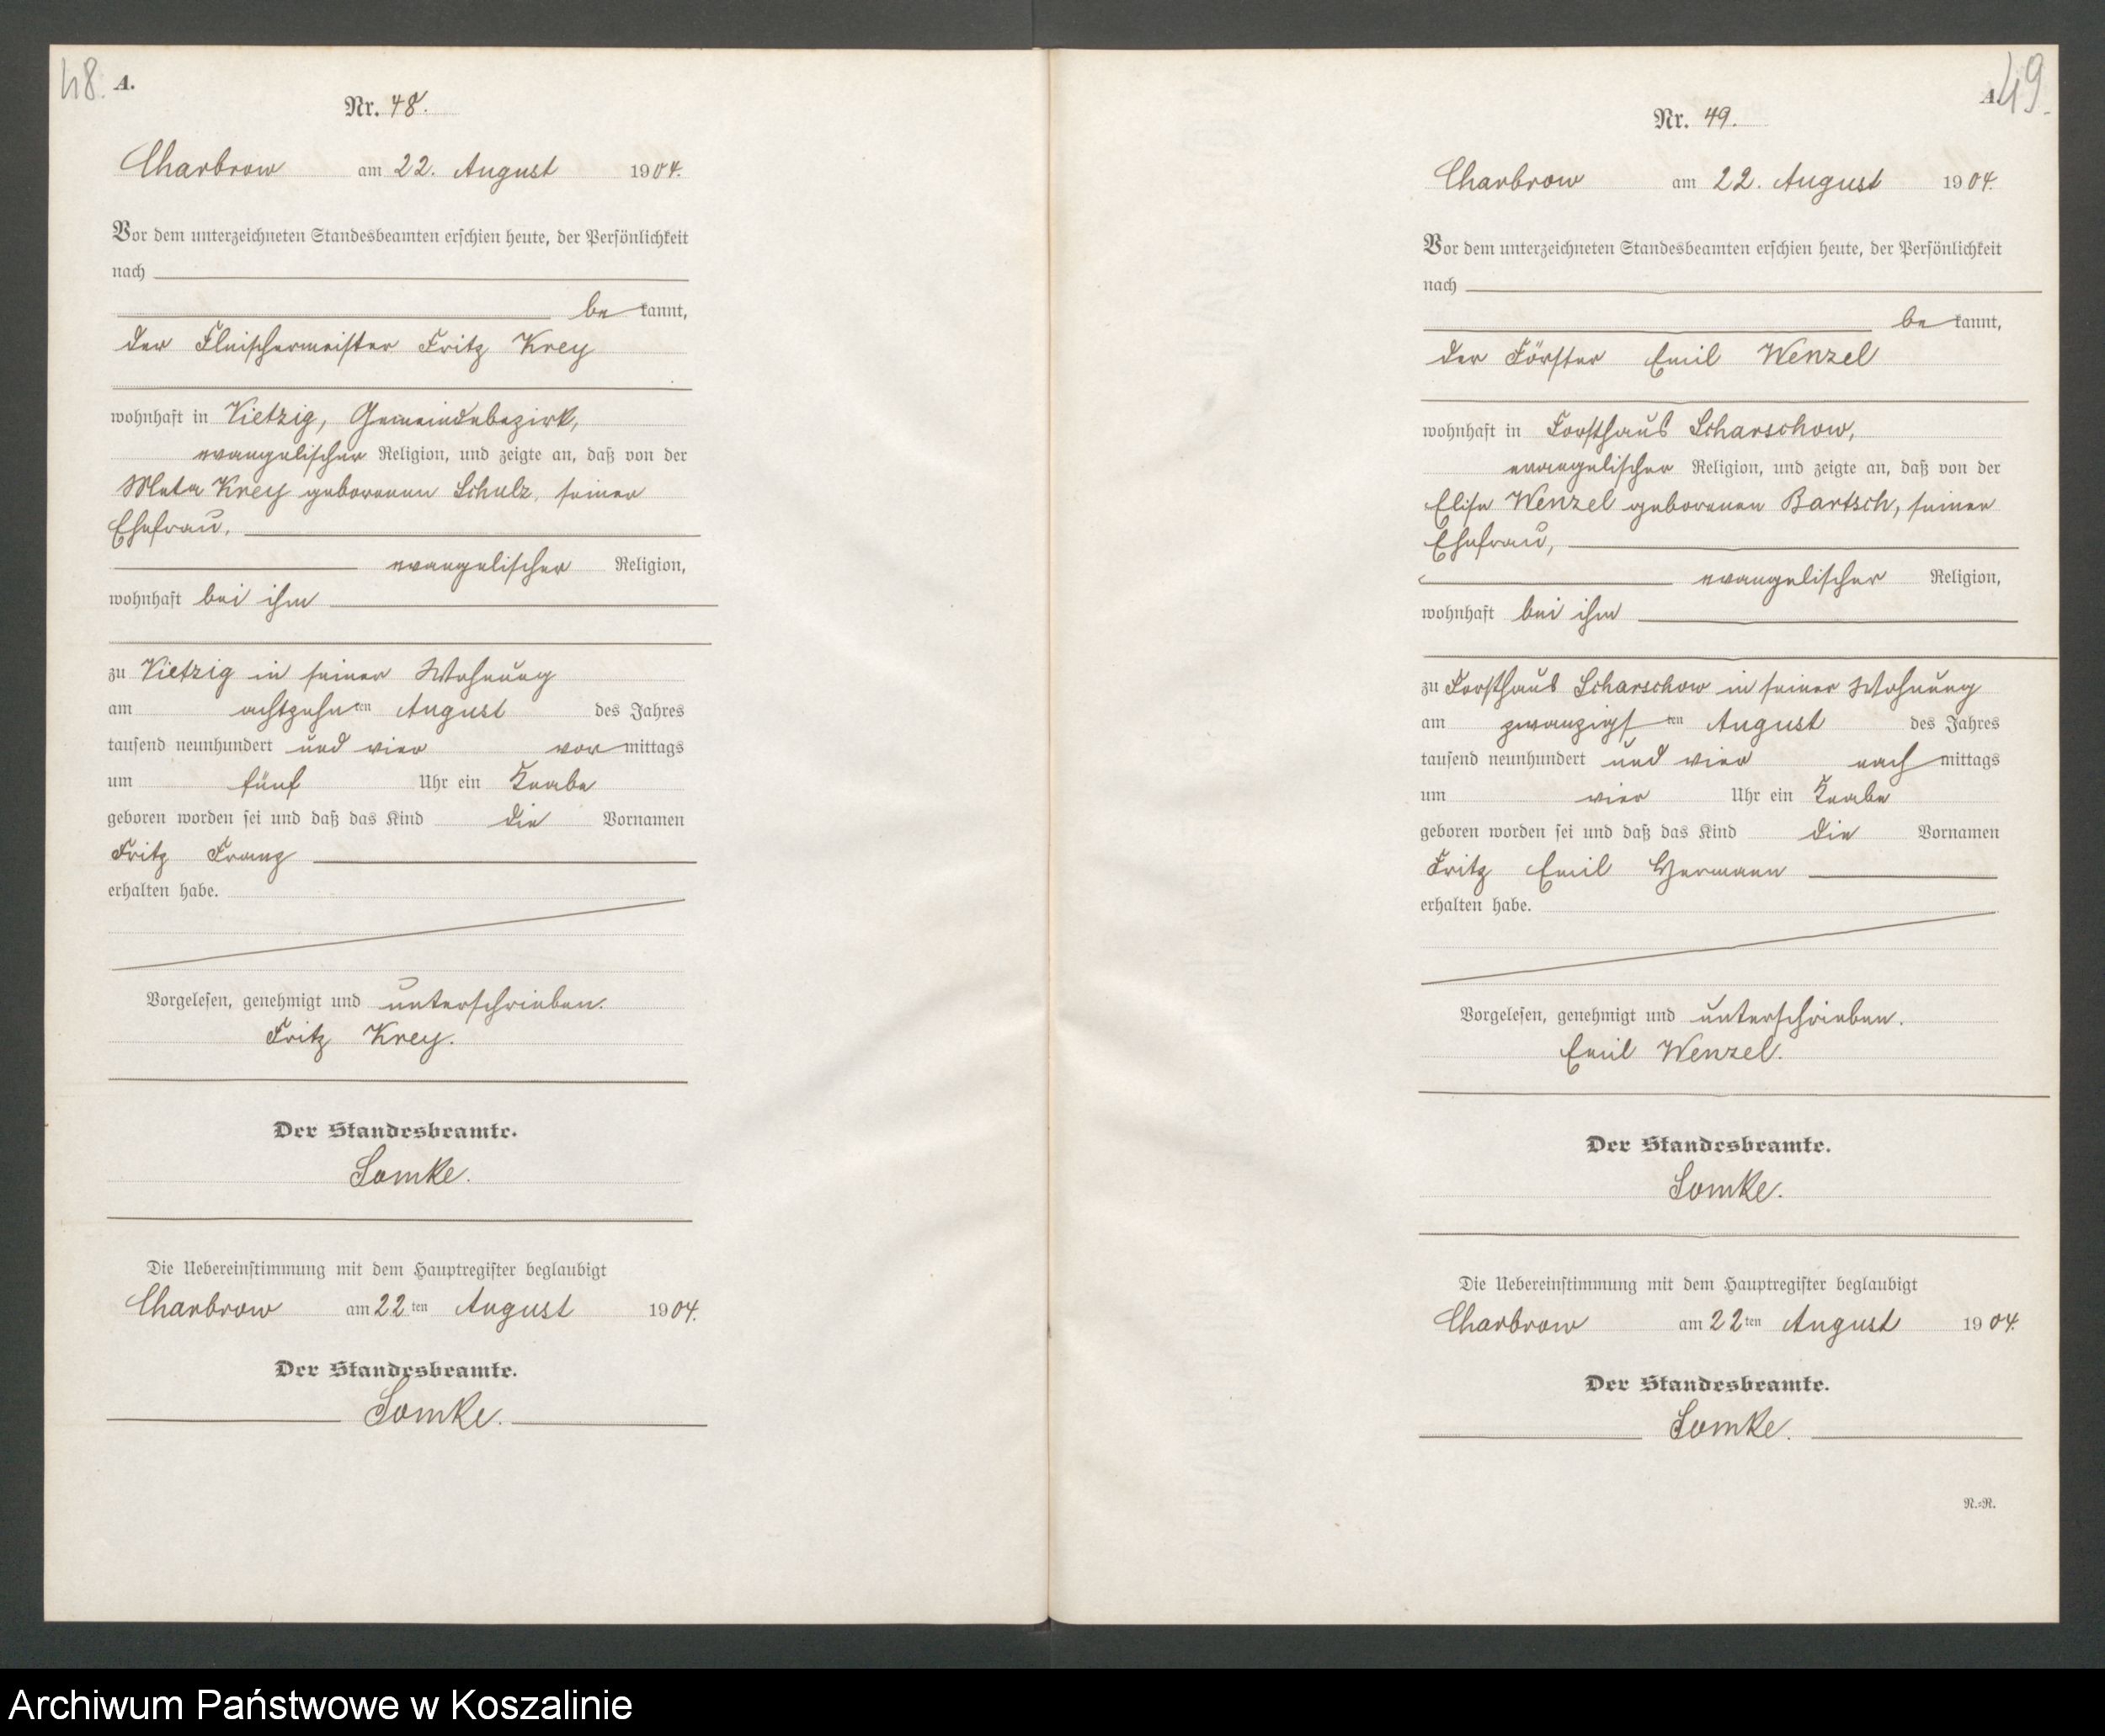 48.
A.
Nr. 48.
Charbrow am 22. August 1904.
Vor dem unterzeichneten Standesbeamten erschien heute, der Persönlichkeit
nach
be kannt,
der Fleischermeister Fritz Krey
wohnhaft in Vietzig, Gemeindebezirk,
evangelischer Religion, und zeigte an, daß von der
Meta Krey geborenen Schulz, seiner
Ehefrau,
evangelischer Religion,
wohnhaft bei ihm
zu Vietzig in seiner Wohnung
am achtzehn ten August des Jahres
tausend neunhundert und vier vor mittags
um fünf Uhr ein Knabe
geboren worden sei und daß das Kind die Vornamen
Fritz Franz
erhalten habe.
Vorgelesen, genehmigt und unterschrieben.
Fritz Krey.
Der Standesbeamte.
Lomke.
Die Uebereinstimmung mit dem Hauptregister beglaubigt
Charbrow am 22 ten August 1904.
Der Standesbeamte.
Lomke.
A.
49.
Nr. 49.
Charbrow am 22. August 1904.
Vor dem unterzeichneten Standesbeamten erschien heute, der Persönlichkeit
nach
be kannt,
der Förster Emil Wenzel
wohnhaft in Forsthaus Scharschow,
evangelischer Religion, und zeigte an, daß von der
Elise Wenzel geborenen Bartsch, seiner
Ehefrau,
evangelischer Religion,
wohnhaft bei ihm
zu Forsthaus Scharschow in seiner Wohnung
am zwanzigs ten August des Jahres
tausend neunhundert und vier nach mittags
um vier Uhr ein Knabe
geboren worden sei und daß das Kind die Vornamen
Fritz Emil Hermann
erhalten habe.
Vorgelesen, genehmigt und unterschrieben.
Emil Wenzel.
Der Standesbeamte.
Lomke.
Die Uebereinstimmung mit dem Hauptregister beglaubigt
Charbrow am 22 ten August 1904.
Der Standesbeamte.
Lomke.
N.=R.
Archiwum Państwowe w Koszalinie